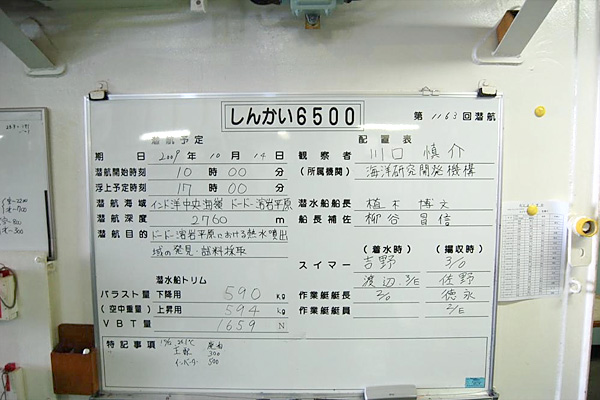 しんかい6500
第 1163 回潜航
潜航予定
配置表
期 日 2009 年 10 月 14 日
観察者 川口 慎介
潜航開始時刻 10 時 00 分
(所属機関) 海洋研究開発機構
浮上予定時刻 17 時 00 分
潜航海域 インド洋中央海嶺 ドードー溶岩平原
潜水船船長 植木 博文
潜航深度 2760 m
船長補佐 柳谷 昌信
潜航目的 ドードー溶岩平原における熱水噴出
域の発見・試料採取
(着水時) (揚収時)
スイマー 吉野 3/0
渡辺 3/E 佐野
潜水船トリム
バラスト量 下降用 590 kg
作業艇艇長 2/0 徳永
(空中重量) 上昇用 594 kg
作業艇艇員 2/E
VBT量 1659 N
特記事項
300
インバーター 500